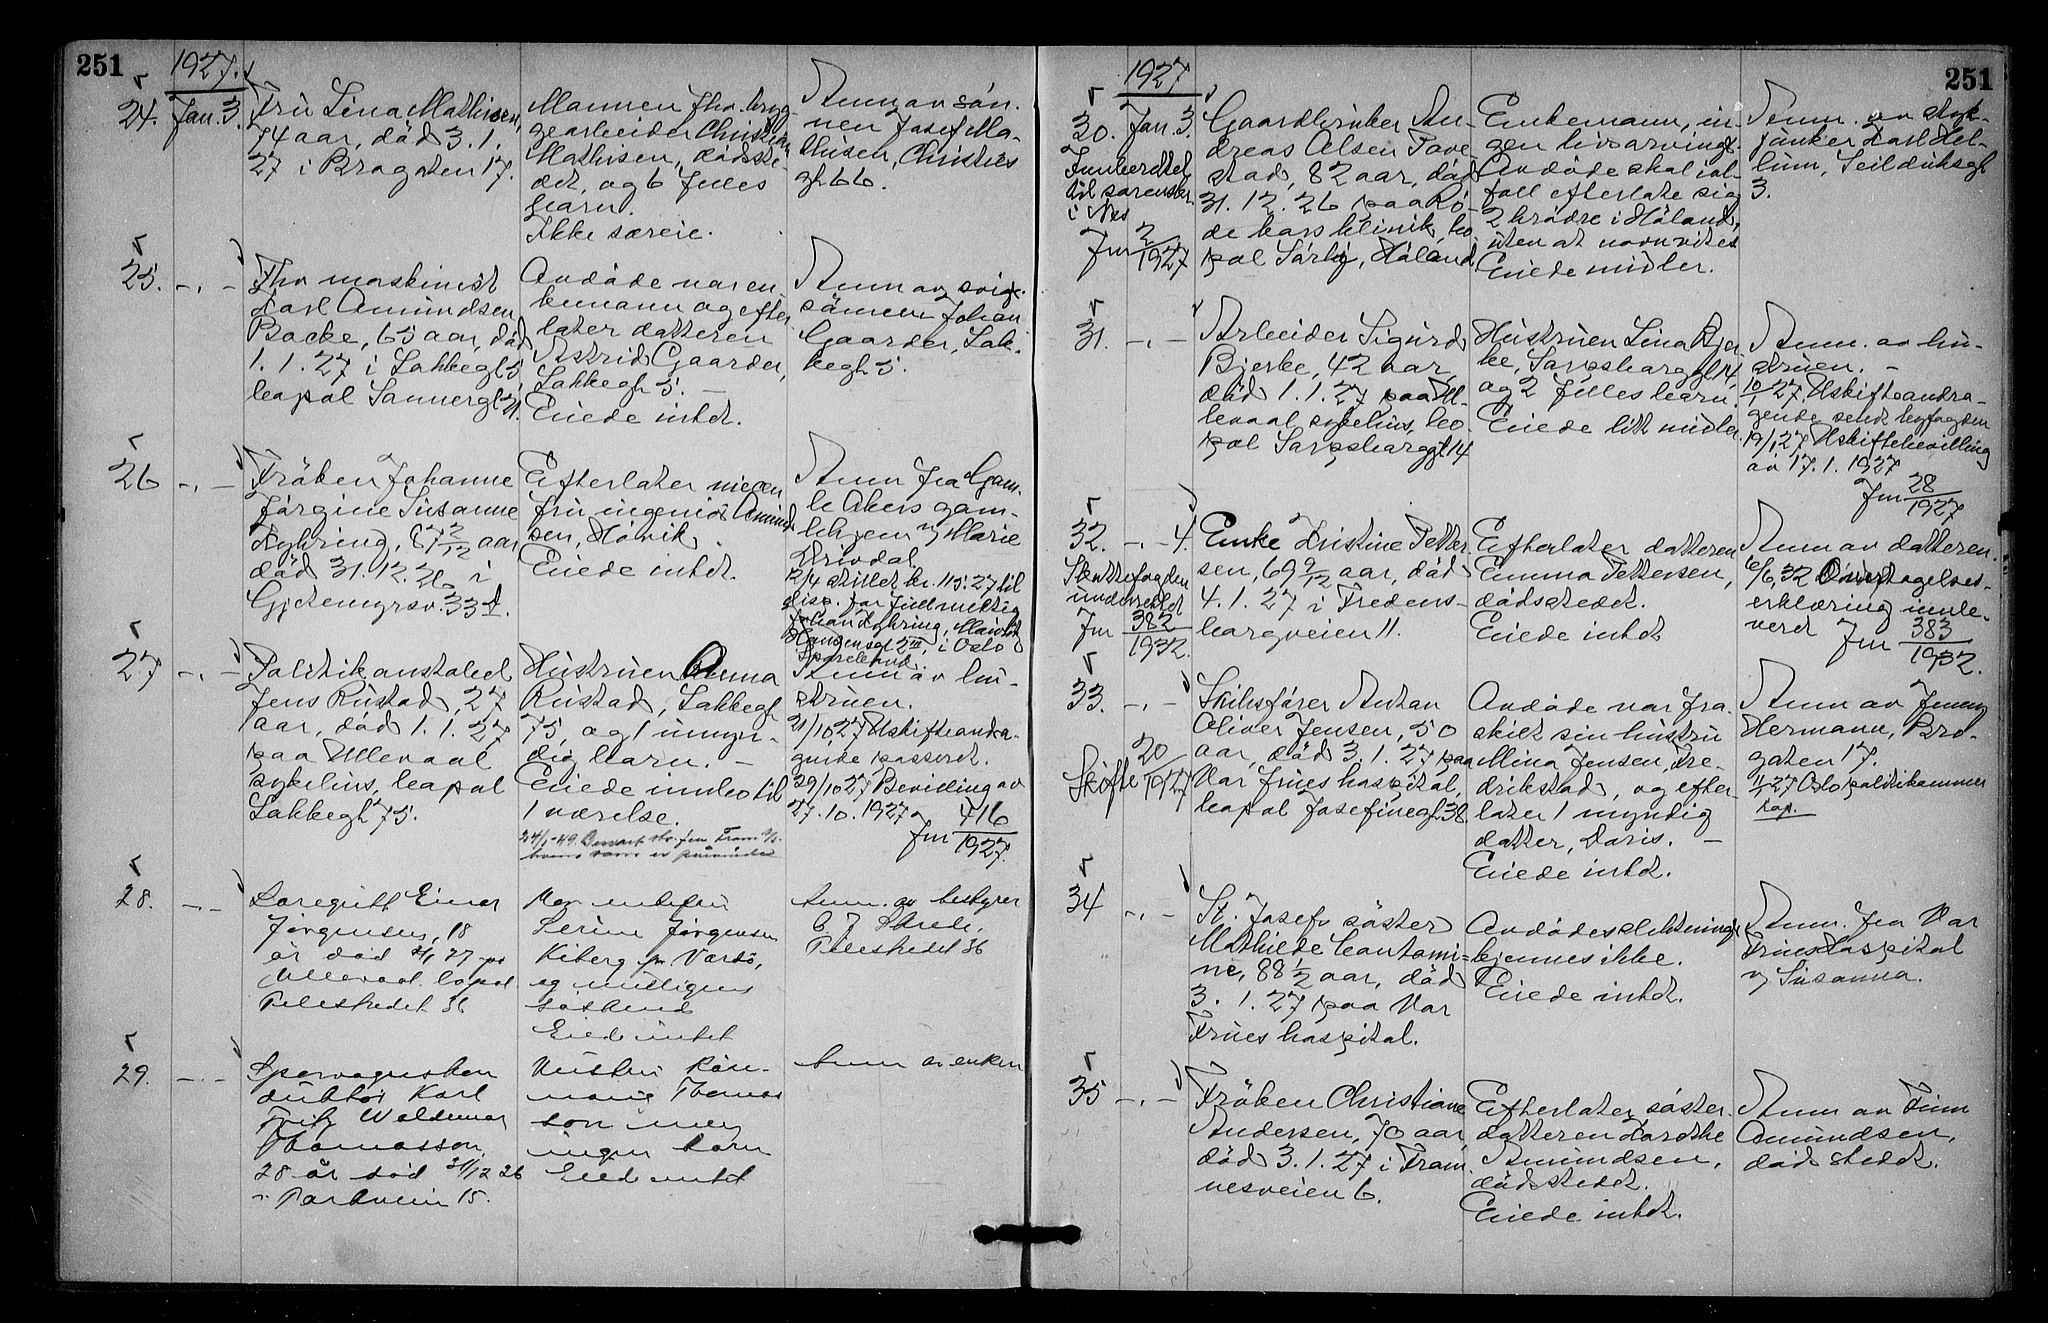 251
1927.
24. Jan. 3.
Fru Lina Mathisen,
74 aar, död 3. 1.
27 i Brogaten 17.
Mannen fhv. bryg-
gearbeider Christian
Mathisen, dödsste-
det, og 6 fælles
barn.
Ikke særeie.
Anm av søn-
nen Josef Ma-
thisen, Christies
gt. 66.
25. -,-
Fhv maskinist
Karl Amundsen
Backe, 65 aar, död
1. 1. 27 i Lakkegt 5,
bopæl Sannergt 21.
Avdöde var en-
kemann og efter-
later datteren
Astrid Gaarder,
Lakkegt 5. -
Eiede intet.
Anm av svige-
sönnen Johan
Gaarder, Lak-
kegt 5.
26 -,-
Fröken Johanne
Jörgine Susanne
Nyhring, 87 2/12 aar
död 31. 12. 26 i
Gjetemyrsv. 33 d.
Efterlater niecen
fru ingeniör Amund-
sen, Hövik.
Eiede intet.
Anm fra Gam-
le Akers gam-
lehjem v/ Marie
Drivdal.
12/4 stillet kr. 115.27 til
disp. for fuldmektig
Johan Nyhring,
i Oslo
Sparebank.
27 -,-
Politikonstabel
Jens Rustad, 27
aar, död 1. 1. 27
paa Ullevaal
sykehus, bopæl
Lakkegt 75.
Hustruen Anna
Rustad, Lakkegt
75, og 1 umyn-
dig barn. -
Eiede innbo til
1 værelse.
Anm av hu-
struen.
21/10 27 Uskifteandra-
gende passeret.
29/10 27 Bevilling av
27. 10. 1927
Jnr 416/1927.
28. -,-
Løregutt Einar
Jörgensen, 18
år död 2/1 27 på
Ullevaal. bopæl
Pilestredet 36
Mor enkefru
Serine Jörgensen
Kiberg pr. Vardö,
og muligens
söskend
Eied intet
Anm. av bestyrer
Pilestredet 36
29. -,-
Sporvognskon
duktör Karl
Fritz Waldemar
Thomasson,
28 år död 31/12 26
i Parkveien 15.
Hustru Rose-
marie Thomas
son men
ingen barn
Eied intet
Anm av enken
251
1927
30. Jan. 3.
Innberettet
til sorenskr.
i Nes
Jnr 2/1927
Gaardbruker An-
dreas Olsen Tove
stad, 82 aar, död
31. 12. 26 paa Rö-
de kors klinik, bo-
pæl Sörby, Höland
Enkemann, in-
gen livsarving.
Avdöde skal ial-
fall efterlate sig
2 brödre i Höland,
uten at navn vites
Eiede midler.
Anm. av styk-
junker Karl Hel-
lum, Seilduksgt
3.
31. -,-
Arbeider Sigurd
Bjerke, 42 aar,
död 1. 1. 27 paa Ul-
levaal sykehus, bo-
pæl Sarpsborggt 14
Hustruen Lina Bjer
ke, Sarpsborggt 14,
og 2 fælles barn.
Eiede litt midler.
Anm. av hu-
struen. -
10/1 27 Uskifteandra-
gende sendt byfogden
19/1 27 Uskiftebevilling
av 17. 1. 1927
Jnr 28/1927
32. -,- 4.
Skattefogden
underrettet
Jnr 382/1932.
Enke Kristine Petter
sen, 69 9/12 aar, död
4. 1. 27 i Fredens-
borgveien 11.
Efterlater datteren
Emma Pettersen,
dödsstedet.
Eiede intet
Anm av datteren.
6/6 32 Overtagelses-
erklæring innle-
vert Jnr 383/1932.
33. -,-
Skifte 20/1927
Skibsförer Anton
Oliver Jensen, 50
aar, död 3. 1. 27 paa
Vor Frues hospital,
bopæl Josefinegt. 38
Avdöde var fra-
skilt sin hustru
Mina Jensen, Fre-
drikstad, og efter-
later 1 myndig
datter, Doris. -
Eiede intet.
Anm av Jenny
Hermann, Bro-
gaten 17.
11/1 27 Oslo politikammer
rap.
34 -,-
St. Josefs söster
Mathilde Contami-
ne, 88 1/2 aar, död
3. 1. 27 paa Vor
Frues hospital.
Avdödes slektninger
kjennes ikke.
Eiede intet.
Anm. fra Vor
Frues Hospital
v/ Susanna.
35 -,-
Fröken Christiane
Andersen, 70 aar
död 3. 1. 27 i Fram
nesveien 6.
Efterlater söster-
datteren Dorthe
Amundsen,
dödsstedet.
Eiede intet.
Anm av Finn
Amundsen,
dödsstedet.